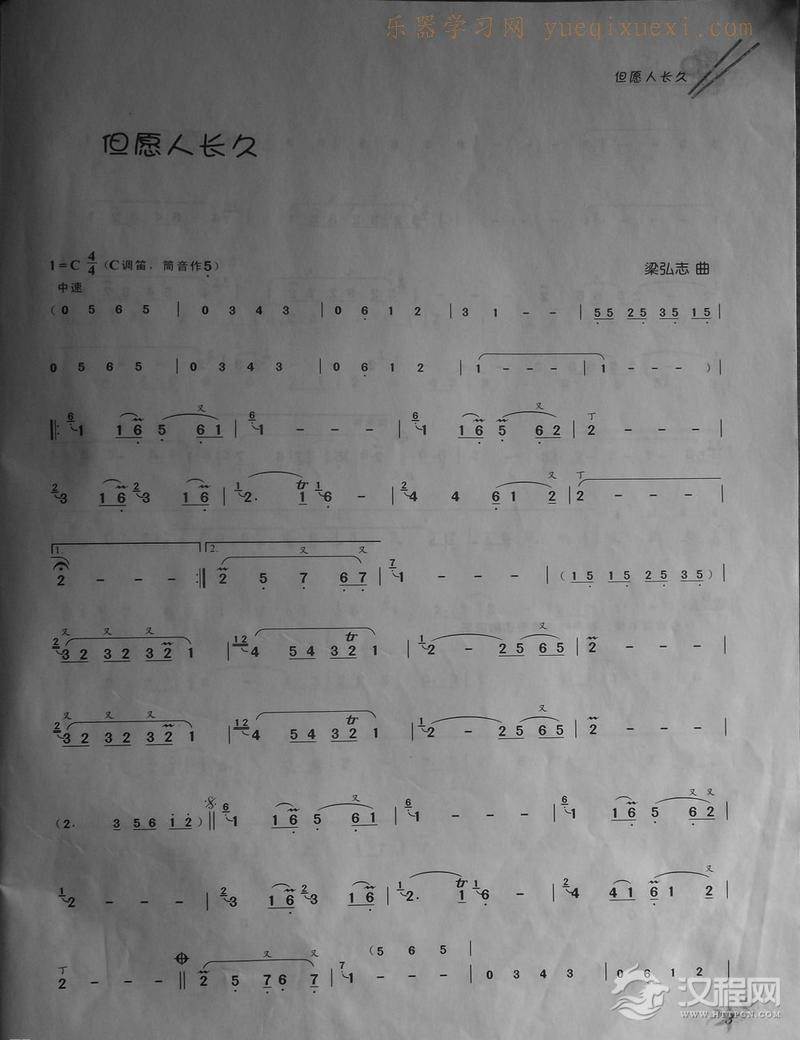 乐器学习网 yueqixuexi.com
但愿人长久
但愿人长久
1=C 4/4 (C调笛,筒音作5)
梁弘志 曲
中速
(0 5 6 5 | 0 3 4 3 | 0 6 1 2 | 3 1 - - | 55 25 35 15 |
0 5 6 5 | 0 3 4 3 | 0 6 1 2 | 1 - - - | 1 - - - )|
||: 6 1 16 5 61 | 6 1 - - - | 6 1 16 5 62 | 2 - - - |
2 3 16 2 3 16 | 1 2. 1 1 6 - | 2 4 4 61 2 | 2 - - - |
1. 2 - - - :|| 2. 2 5 7 67 | 7 1 - - - | (15 15 25 35) |
2 32 32 32 1 | 12 4 54 32 1 | 1 2 - 25 65 | 2 - - - |
2 32 32 32 1 | 12 4 54 32 1 | 1 2 - 25 65 | 2 - - - |
(2. 3 56 12) || 6 1 16 5 61 | 6 1 - - - | 6 1 16 5 62 |
1 2 - - - | 2 3 16 2 3 16 | 1 2. 1 1 6 - | 2 4 41 61 2 |
2 - - - || 2 5 76 7 | 7 1 - - - | 0 3 4 3 | 0 6 1 2 |
(5 6 5 |
汉程网
WWW.HTTPCN.COM